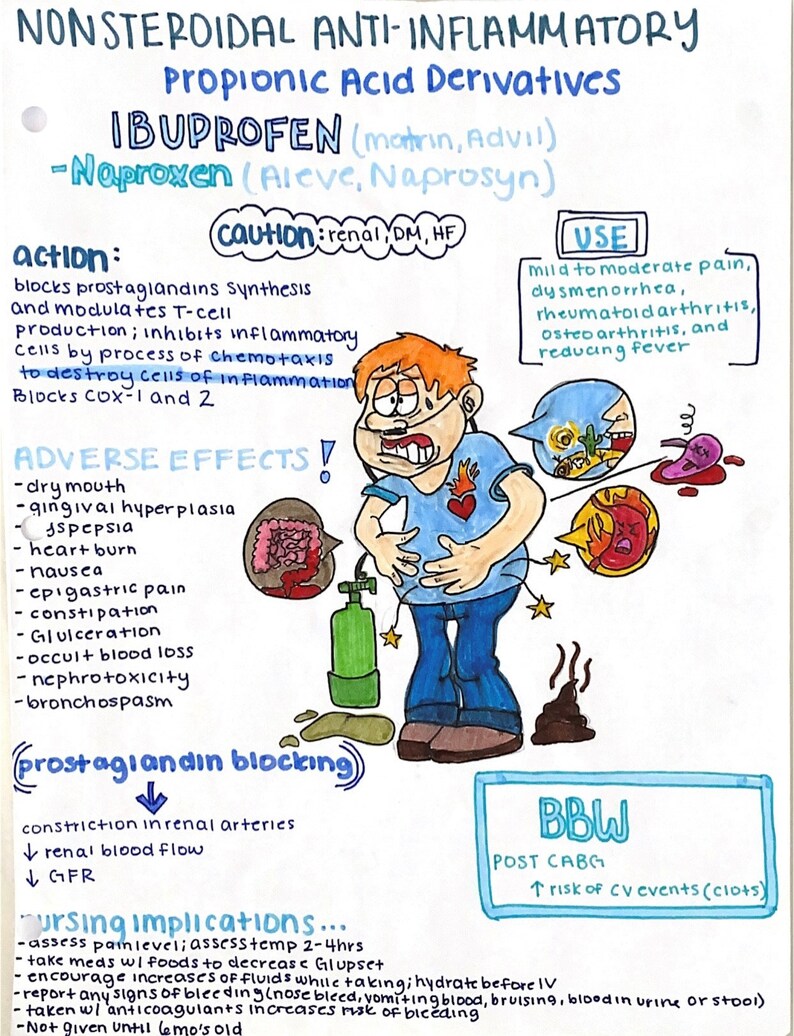 NONSTEROIDAL ANTI-INFLAMMATORY
Propionic Acid Derivatives
IBUPROFEN (motrin, Advil)
-Naproxen (Aleve, Naprosyn)
caution: renal, DM, HF
action:
blocks prostaglandins synthesis
and modulates T-cell
production; inhibits inflammatory
cells by process of chemotaxis
to destroy cells of inflammation
Blocks COX-1 and 2
USE
mild to moderate pain,
dysmenorrhea,
rheumatoid arthritis,
osteoarthritis, and
reducing fever
ADVERSE EFFECTS!
-dry mouth
-gingival hyperplasia
- yspepsia
-heart burn
-nausea
-epigastric pain
-constipation
-GI ulceration
-occult blood loss
-nephrotoxicity
-bronchospasm
(prostaglandin blocking)
↓
constriction in renal arteries
↓ renal blood flow
↓ GFR
BBW
POST CABG
↑ risk of CV events (clots)
ursing implications...
-assess pain level; assess temp 2-4hrs
-take meds w/ foods to decrease GI upset
-encourage increases of fluids while taking; hydrate before IV
-report any signs of bleeding (nose bleed, vomiting blood, bruising, blood in urine or stool)
-taken w/ anticoagulants increases risk of bleeding
-Not given until 6mo's old